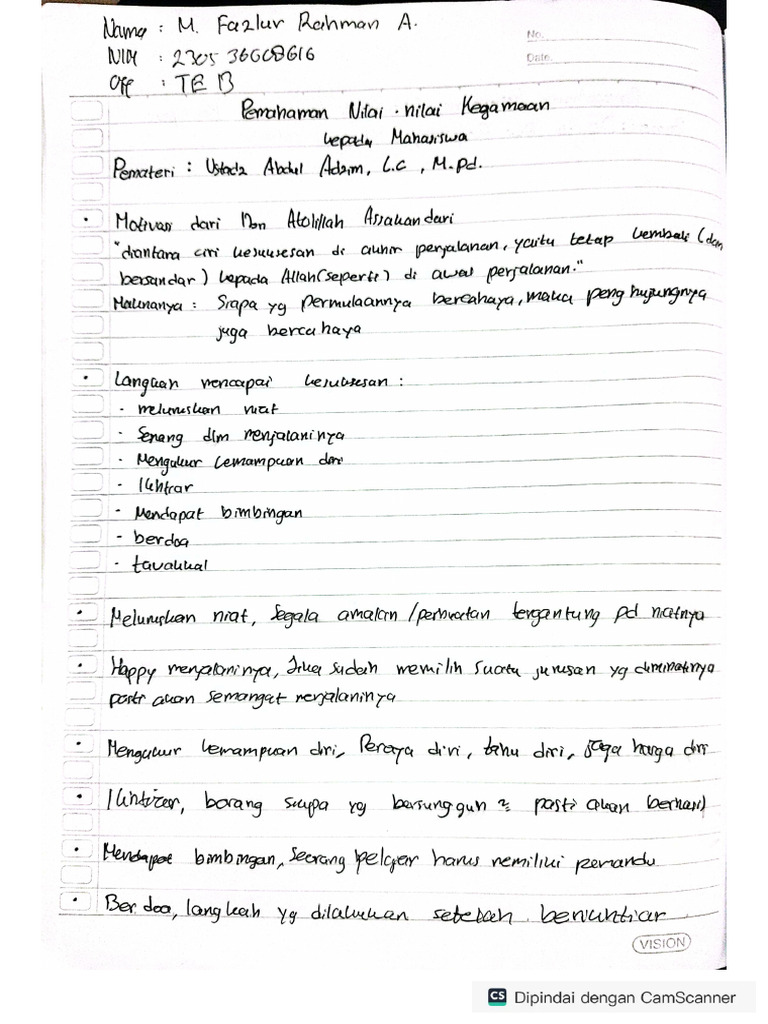 Nama : M. Fazlur Rahman A.
No.
NIM : 230536608616
Date.
Off : TE B
Pemahaman Nilai-nilai Kegamaan
kepada Mahasiswa
Pemateri : Ustadz Abdul Adzim, L.C , M.pd.
• Motivasi dari Ibn Atoilillah Assakandari
"diantara ciri kesuksesan di akhir perjalanan, yaitu tetap kembali (dan
bersandar) kepada Allah (seperti) di awal perjalanan."
Maknanya : Siapa yg permulaannya bercahaya, maka penghujungnya
juga bercahaya
• Langkah mencapai kesuksesan :
- meluruskan niat
- Senang dlm menjalaninya
- Mengukur kemampuan diri
- Ikhtiar
- Mendapat bimbingan
- berdoa
- tawakkal
• Meluruskan niat, Segala amalan/perbuatan tergantung pd niatnya
• Happy menjalaninya, Jika sudah memilih suatu jurusan yg diminatinya
pasti akan semangat menjalaninya
• Mengukur kemampuan diri, Percaya diri, tahu diri, jaga harga diri
• Ikhtiar, barang siapa yg bersungguh² pasti akan berhasil
• Mendapat bimbingan, Seorang pelajar harus memiliki pemandu
• Berdoa, langkah yg dilakukan setelah berikhtiar
VISION
CS Dipindai dengan CamScanner